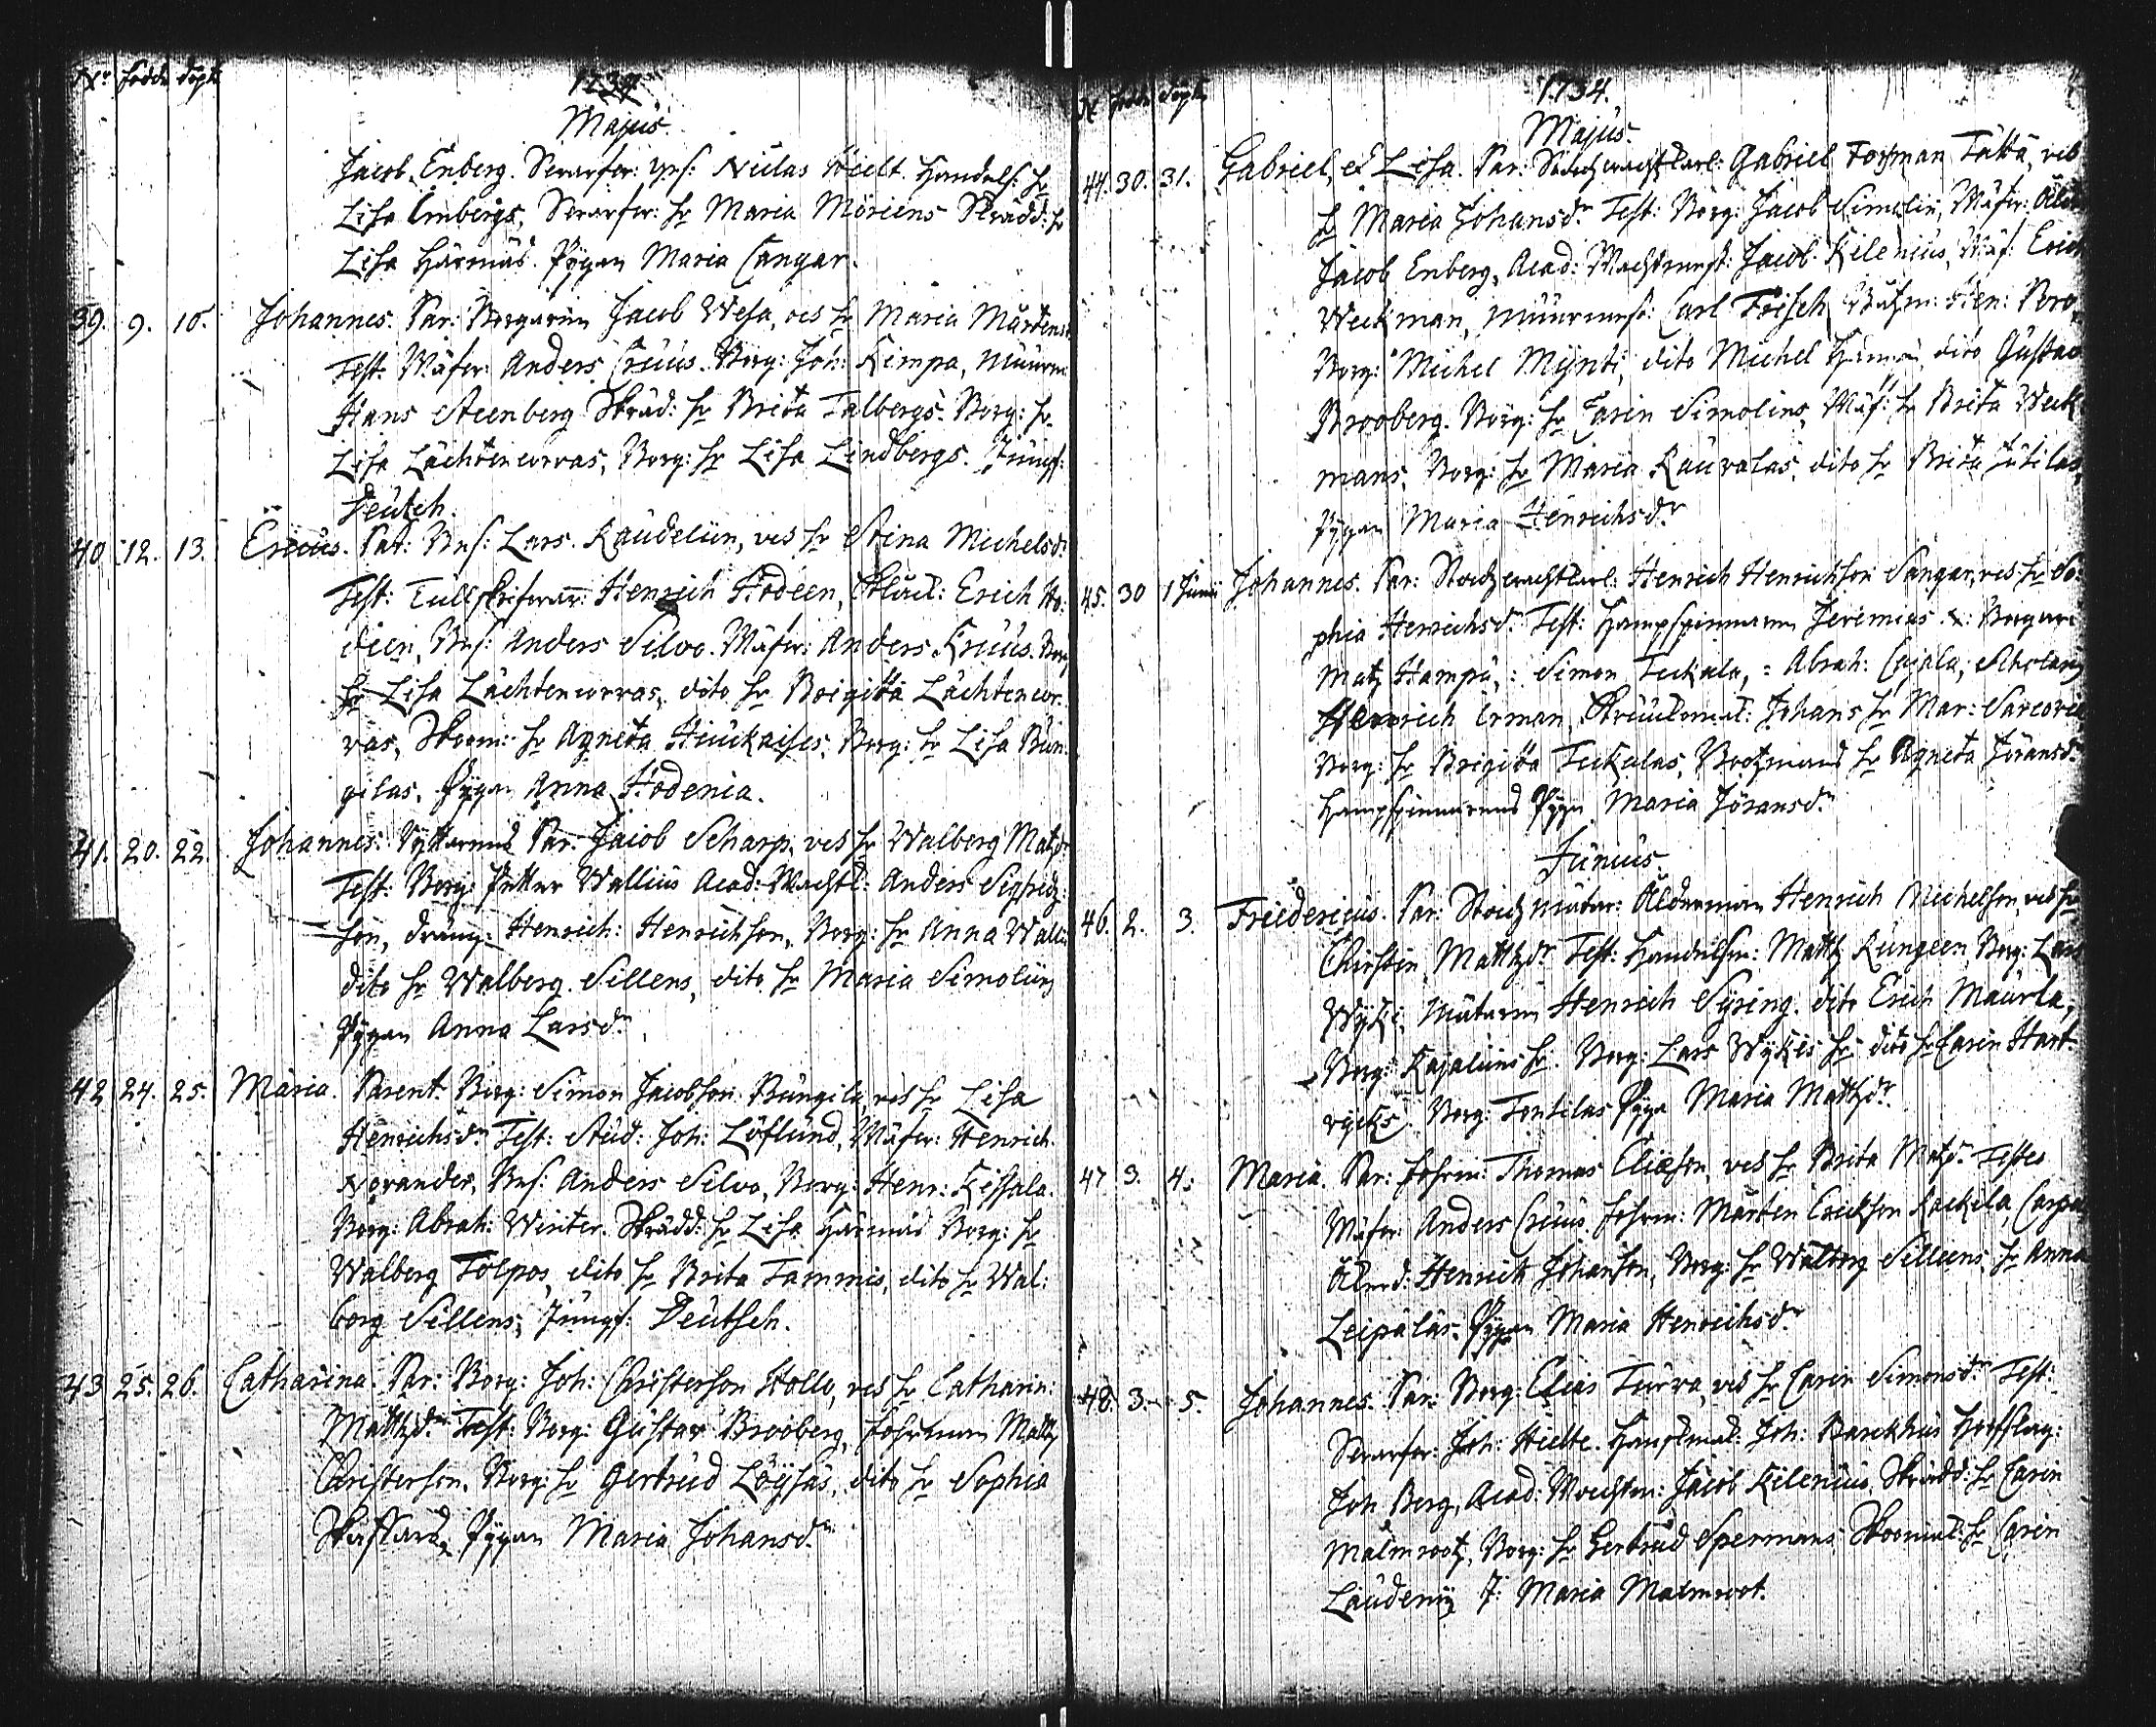 No födde döpte
1734
Majus
Jacob Enberg. Swarfwar: Niclas handels: hr
Lisa Enbergs, Swarfwar: hr Maria Möriens Skrädd: hr
Lisa Härmäs. Pygan Maria Cangar.
39. 9. 10. Johannes. Par: Borgaren Jacob Wesa, ves hr Maria Mårtensd
Test. Mäster Anders Creüs. Borg: Joh: Kimpa, Muurm
Hans Steenberg Skräd: hr Brita Talbergs. Borg: hr
Lisa Lächtencorvas, Borg: hr Lisa Lindbergs. Jumf:
Deutch.
40 12. 13. Ericus. Par: Bns: Lars Kaudeliin, ves hr Stina Michelsdr
Test: Henrich Hodeen, Erich Ho:
deen, Bns: Anders Silvo. Mäster: Anders Kruus. Borg
hr Lisa Lächtencorvas, dito hr Brigitta Lächtencor:
vas, Skoom: hr Agneta Hiuckaises, Borg: hr Lisa Bün
gilas, Pygan Anna Hodenia.
41. 20. 22. Johannes. Ryttarens Par: Jacob Scharp, ves hr Walberg Matzdr
Test: Borg: Petter Wallius Acad: Wachtl: Anders Sigfridz
son, dräng: Henrich: Henrichson, Borg: hr Anna Wallii
dito hr Walberg Sillens, dito hr Maria Simoliin
Pygan Anna Larsdr
42 24. 25. Maria. Parent. Borg: Simon Jacobson Büngila, ves hr Lisa
Henrichsdr Test: Stud: Joh: Löflund, Mäster: Henrich
Norander, Bns: Anders Silvo, Borg: Henr: Kissala
Borg: Abrah: Winter. Skrädd: hr Lisa Härmäs Borg: hr
Walberg Tolpos, dito hr Brita Tammis, dito hr Wal:
borg Sillens, Jungf: Deutsch.
43 25. 26. Catharina. Par: Borg: Joh: Christerson Hollo, ves hr Catharin:
Matthzdr Test: Borg: Gustav Brooberg, Fohrman Matz
Christerson. Borg: hr Gertrud Löysäs, dito hr Sophia
Pygan Maria Johansdr
N födde döpte
1734.
Majus.
44. 30. 31. Gabriel, et Lisa. Par: Gabriel Forsman Tättä, ves
hr Maria Johansdr Test: Borg: Jacob Simolin, Mäster: Ålder
Jacob Enberg, Acad: Wachtmest: Jacob Kilenius, Mäs: Erich
Weckman, Muurmest: Carl Frisch, Båtzm: Hen: Poro,
Borg: Michel Mynti, dito Michel Härmä, dito Gustav
Brooberg. Borg: hr Carin Simolins, Mäs: hr Brita Weck
mans, Borg: hr Maria Kauvalas, dito hr Brita Jütilas,
Pygan Maria Henrichsdr
45. 30 1 Junii Johannes. Par: Henrich Henrichson Sangar, ves hr So:
phia Henrichsd: Test: Hampspinnaren Jeremias Borgare
Matz Hampu, : Simon Teckala, : Abrah: Cajala, Scholar
Henrich Erman, Johans hr Mar:
Borg: hr Brigitta Teckalas, Bootzmans hr Agneta Jöransdr
Hampspinnarens Pyga Maria Jöransdr
Junius
46. 2. 3. Friedericus. Par: Åldermän Henrich Michelson, ves hr
Christin Matthzdr Test: Handelsm: Matth Rungeen Borg: Lars
Wyki, Henrich Syring. dito Erich Maurla,
Borg: Kajaliins hr. Borg: Lars Wykis hr dito hr Carin Hart:
wycks. Borg: Tontilas Pyga Maria Matthzdr
47 3. 4. Maria. Par: Fohrm: Thomas Eliæson, ves hr Brita Matzdr Testes
Mäster: Anders Creüs. Fohrm: Mårten Erickson Lackila,
Ålderd: Henrich Johanson, Borg: hr Walborg Silleens, hr Anna
Leipäläs, Pygan Maria Henrichsdr
48. 3. 5. Johannes. Par: Borg: Elias Turva, ves hr Carin Simonsdr Test:
Swarfwar: Joh: Hielte. Joh: Barckhus
Joh Berg, Acad: Wachtm: Jacob Kilenius, Skrädd: hr Carin
Malmroot, Borg: hr Gertrud Spermans, hr Carin
J: Maria Malmroot.